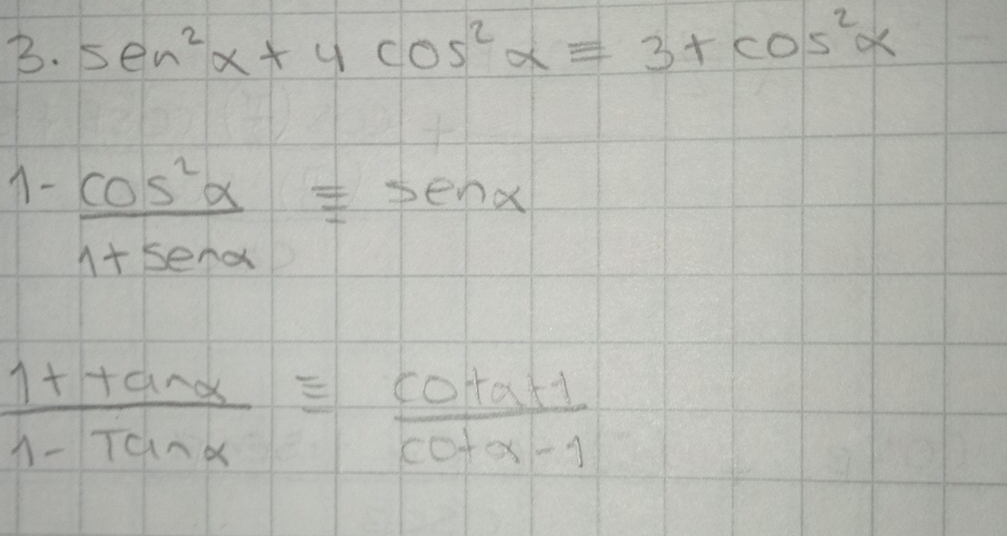 3. sen²α + 4 cos²α = 3 + cos²α
1 - cos²α / 1 + senα ≡ senα
1 + tanα / 1 - Tanα ≡ cotα + 1 / cotα - 1